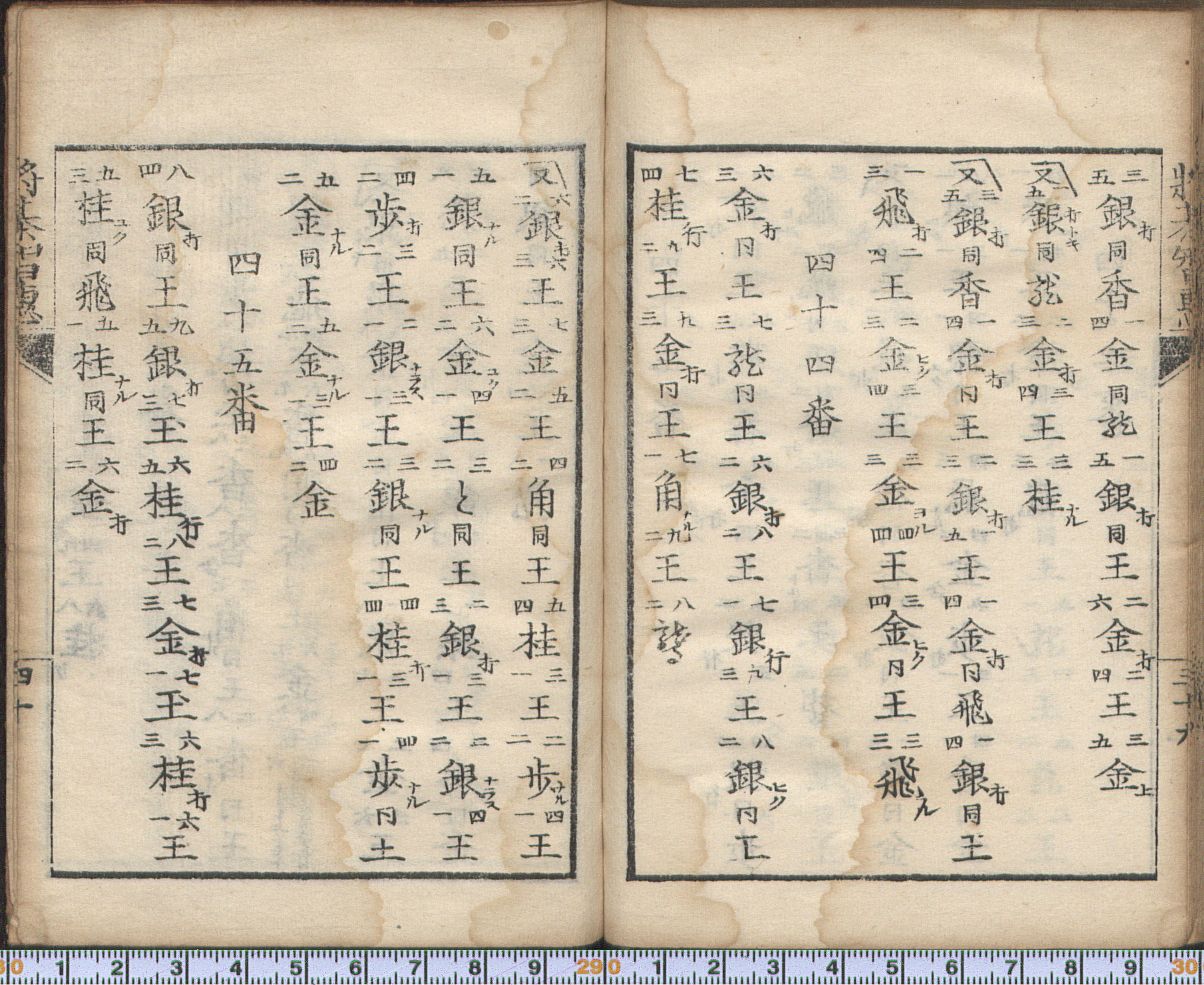 三五銀打同香一四金同龍一五銀打同二六金打二四王三九金上
又一五銀打トキ同龍二三金打三四王三三桂ナル
又三五銀打同香一四金打同王二三銀打五王一四金打同飛一四銀打同王
一三飛打二四王二三金ヒク三四王三金ヨル四四王三四金ヒク同王三三飛ナル
四十四番
六二金打同王七三龍同王六二銀打八二王七一銀行九三王八二銀ヒク同王
七四桂行九二王九三金打同王七一角ナル九二王八二鷲
又六二銀打六三王七三金五二王四二角同王五四桂三一王二二歩ナル四一王
五一銀ナル同王六二金ユク四一王三二と同王二三銀打三一王二二銀ナラス四一王
四二歩打三二王二一銀ナラス三一王三二銀ナル同王四四桂打三一王四二歩ナル同王
五二金ナル同王五三金ナル三一王四二金
四十五番
八四銀打同王九五銀打七三王六五桂行八二王七三金打七一王六三桂打六一王
五三桂ユク同飛五一桂ナル同王六二金打
四十